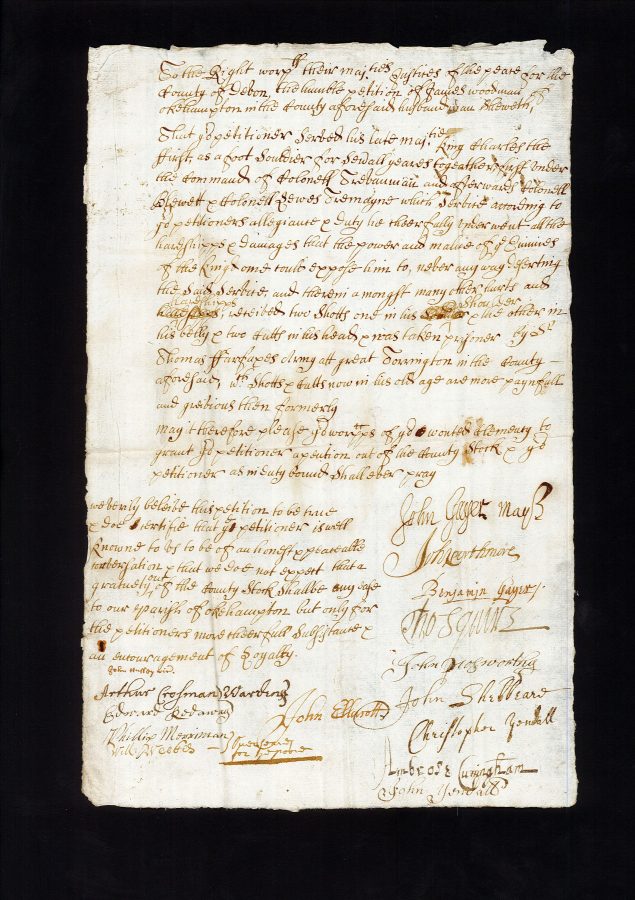 To the Right worp:ll their maj:ties Justices of the peace for the
County of Devon, the humble petition of James woodman of
okehampton in the County aforesaid husbandman Sheweth,
That yo:r petitioner Served his late maj:tie King Charles the
ffirst, as a foot Souldier for Sevall yeares togeather, ffirst Under
the Command of Colonell Trevanian and afterwards Colonell
Blewett & Colonell Lewes Tremayne which Service according to
yo:r petitioners allegiance & duty he cheerfully Underwent all the
hardshipps & damages that the power and malice of ye Enimies
of the Kingdome could expose him to, never any way deserting
the Said Service, and therein amongst many other hurts and
hardshipps
received two Shotts one in his Shoulder & the other in
his belly & two Cutts in his head & was taken prisoner by S:r
Thomas ffairfaxes Army att great Torrington in the County
aforesaid, w:ch Shotts & Cutts now in his old age are more paynfull
and greivous then formerly
may it therefore please yo:r wor:ps of yo:r wonted Clemency to
grant yo:r petitioner a pention out of the County Stock & yo:r
petitioner as in duty bound Shall ever pray
we verily beleive this petition to be true
& doe Certifie that ye petitioner is well
Knowne to Us to be of an honest & peaceable
Conversation & that we doe not expect that a
gratuety out of the County Stock Shall be any ease
to our parish of okehampton but only for
the petitioners more cheerfull Subsistance &
an encouragement of Loyalty.
John Gayer may:r
John Northmore
Benjamin Gayer
Tho Squire
John Nosworthy
John Shebbeare
Christopher Yendall
Ambrose Cuningham
John Yendall
Arthur Crosman Wardens
Edward Redaway
Phillip Merriman
Will Webber
Overseers
for ye poore
John Elliott